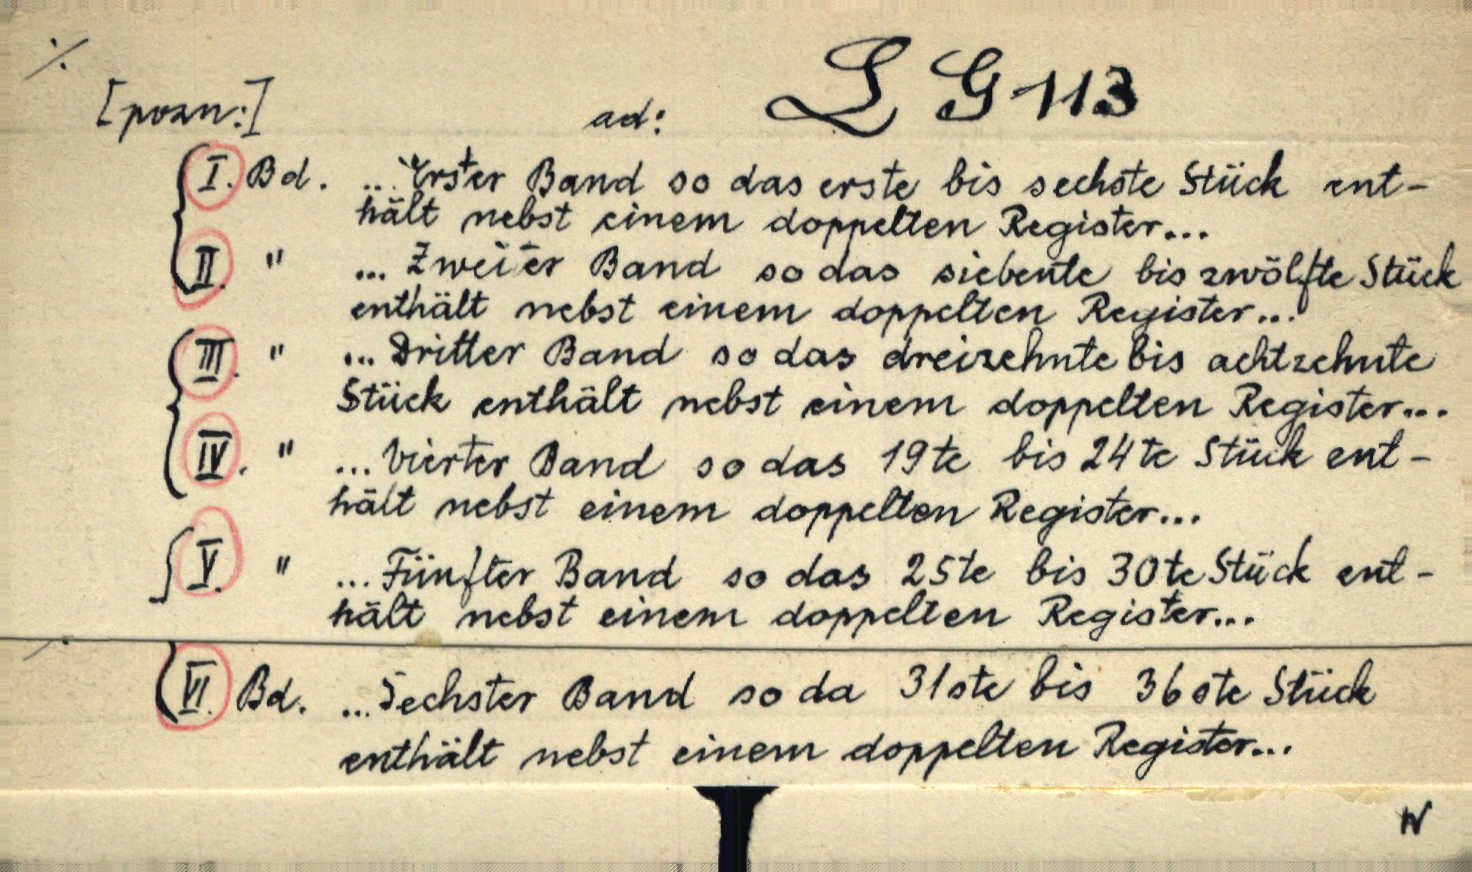 ./.
[pozn:] ad: L G 113
I. Bd. ... Erster Band so das erste bis sechste Stück ent-
hält nebst einem doppelten Register...
II. " ... Zweiter Band so das siebente bis zwölfte Stück
enthält nebst einem doppelten Register...
III. " ... Dritter Band so das dreizehnte bis achtzehnte
Stück enthält nebst einem doppelten Register...
IV. " ... Vierter Band so das 19te bis 24te Stück ent-
hält nebst einem doppelten Register...
V. " ... Fünfter Band so das 25te bis 30te Stück ent-
hält nebst einem doppelten Register...
VI. Bd. ... Sechster Band so da 31ste bis 36ste Stück
enthält nebst einem doppelten Register...